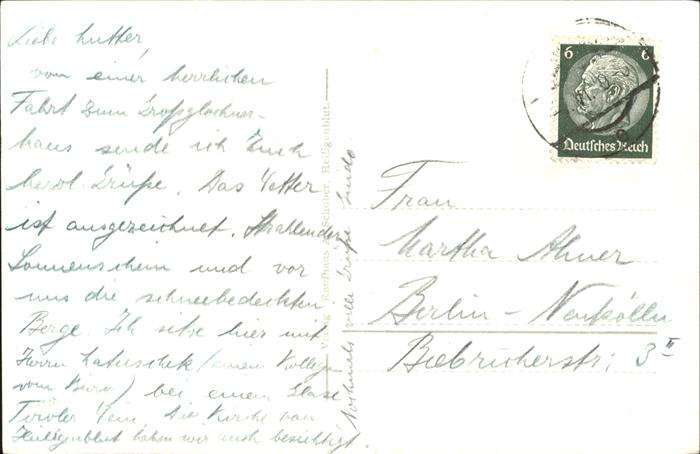 Liebe Mutter,
von einer herrlichen
Fahrt zum Großglockner-
haus sende ich Euch
herzl. Grüße. Das Wetter
ist ausgezeichnet. Strahlender
Sonnenschein und vor
uns die schneebedeckten
Berge. Ich sitze hier mit
Herrn (einem Kollegen
vom Büro) bei einem Glase
Tiroler Wein. Die Kirche von
Heiligenblut haben wir auch besichtigt.
Nochmals viele Grüße
Verlag Kaufhaus Schober, Heiligenblut
6 6
Deutsches Reich
Frau
Martha
Berlin-Neukölln
Biebricherstr. 3 II